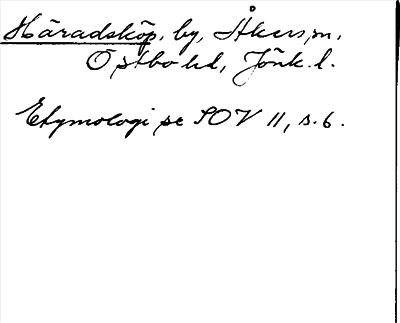 Häradsköp, by, Åkers sn,
Östbo hd, Jönk. l.
Etymologi se SOV 11, s. 6.